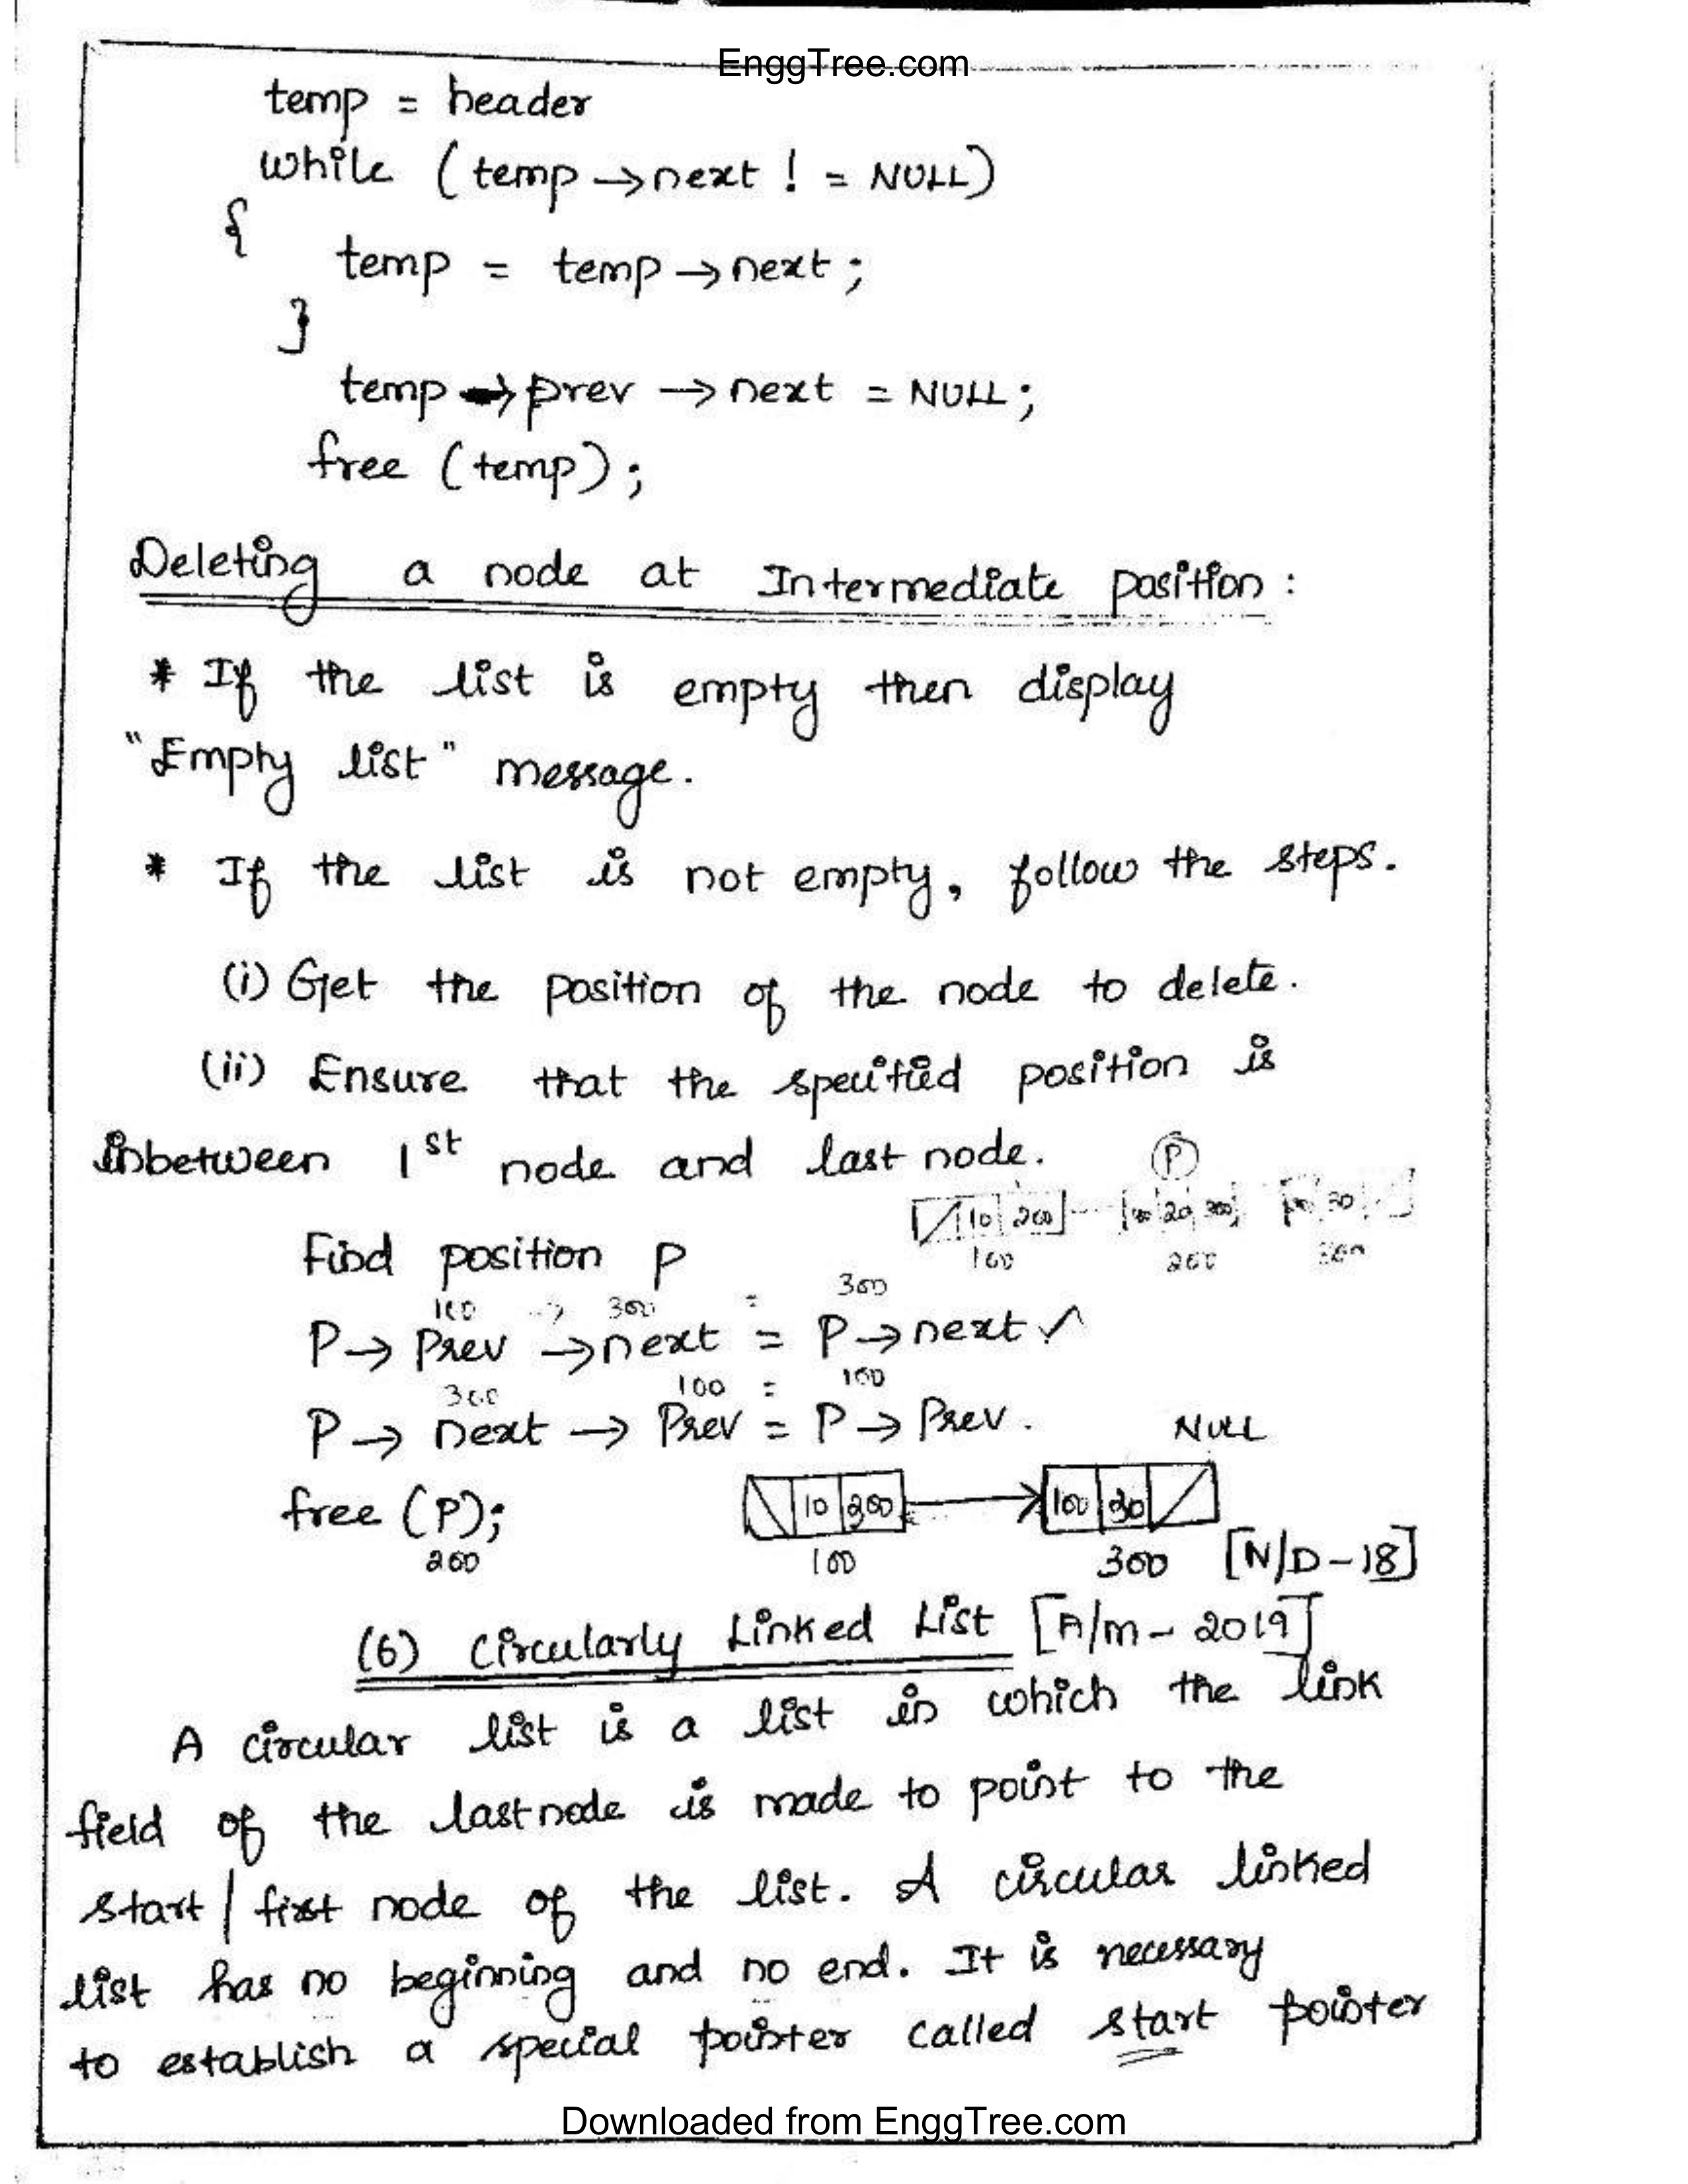 EnggTree.com
temp = header
while (temp → next ! = NULL)
{
temp = temp → next ;
}
temp → prev → next = NULL ;
free (temp) ;
Deleting a node at Intermediate position :
* If the list is empty then display
"Empty list" message.
* If the list is not empty, follow the steps.
(i) Get the position of the node to delete.
(ii) Ensure that the specified position is
inbetween 1st node and last node.
P
10 200 20 300 30
100 200 300
Find position P
100 → 300 = 300
P → Prev → next = P → next ✓
300 100 = 100
P → next → Prev = P → Prev .
NULL
free (P);
10 300 → 100 30
200 100 300 [N/D-18]
(6) Circularly Linked List [A/M - 2019]
A circular list is a list in which the link
field of the lastnode is made to point to the
start / first node of the list. A circular linked
list has no beginning and no end. It is necessary
to establish a special pointer called start pointer
Downloaded from EnggTree.com